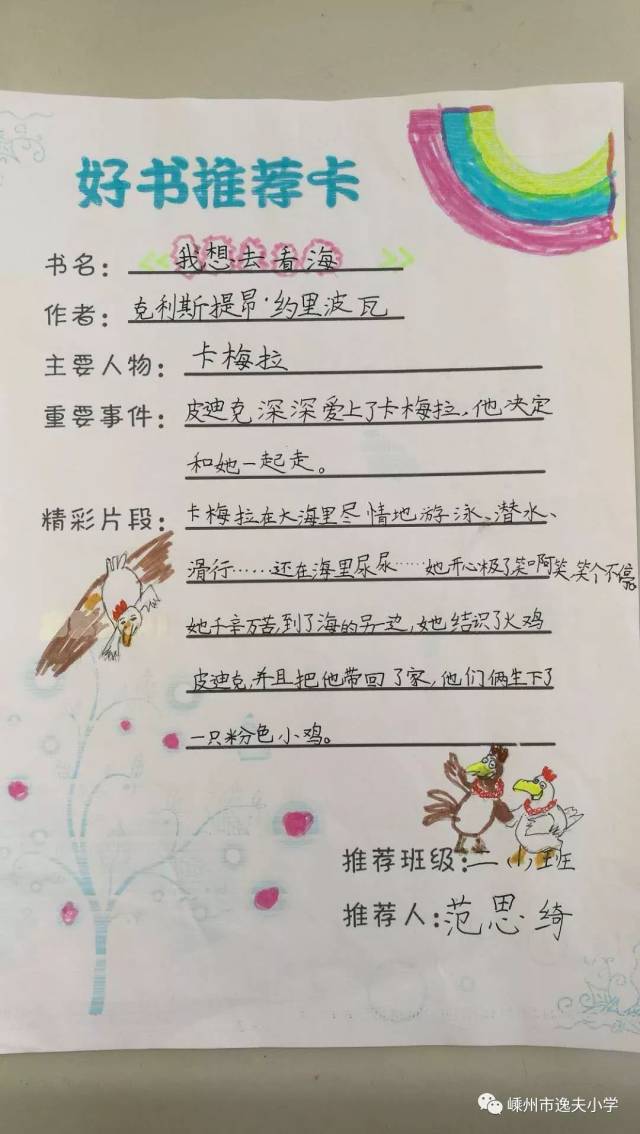 好书推荐卡
书名：《我想去看海》
作者：克利斯提昂·约里波瓦
主要人物：卡梅拉
重要事件：皮迪克深深爱上了卡梅拉，他决定
和她一起走。
精彩片段：卡梅拉在大海里尽情地游泳、潜水、
滑行……还在海里尿尿……她开心极了笑啊笑，笑个不停。
她千辛万苦，到了海的另一边，她结识了火鸡
皮迪克，并且把他带回了家，他们俩生下了
一只粉色小鸡。
推荐班级：二（1）班
推荐人：范思绮
嵊州市逸夫小学